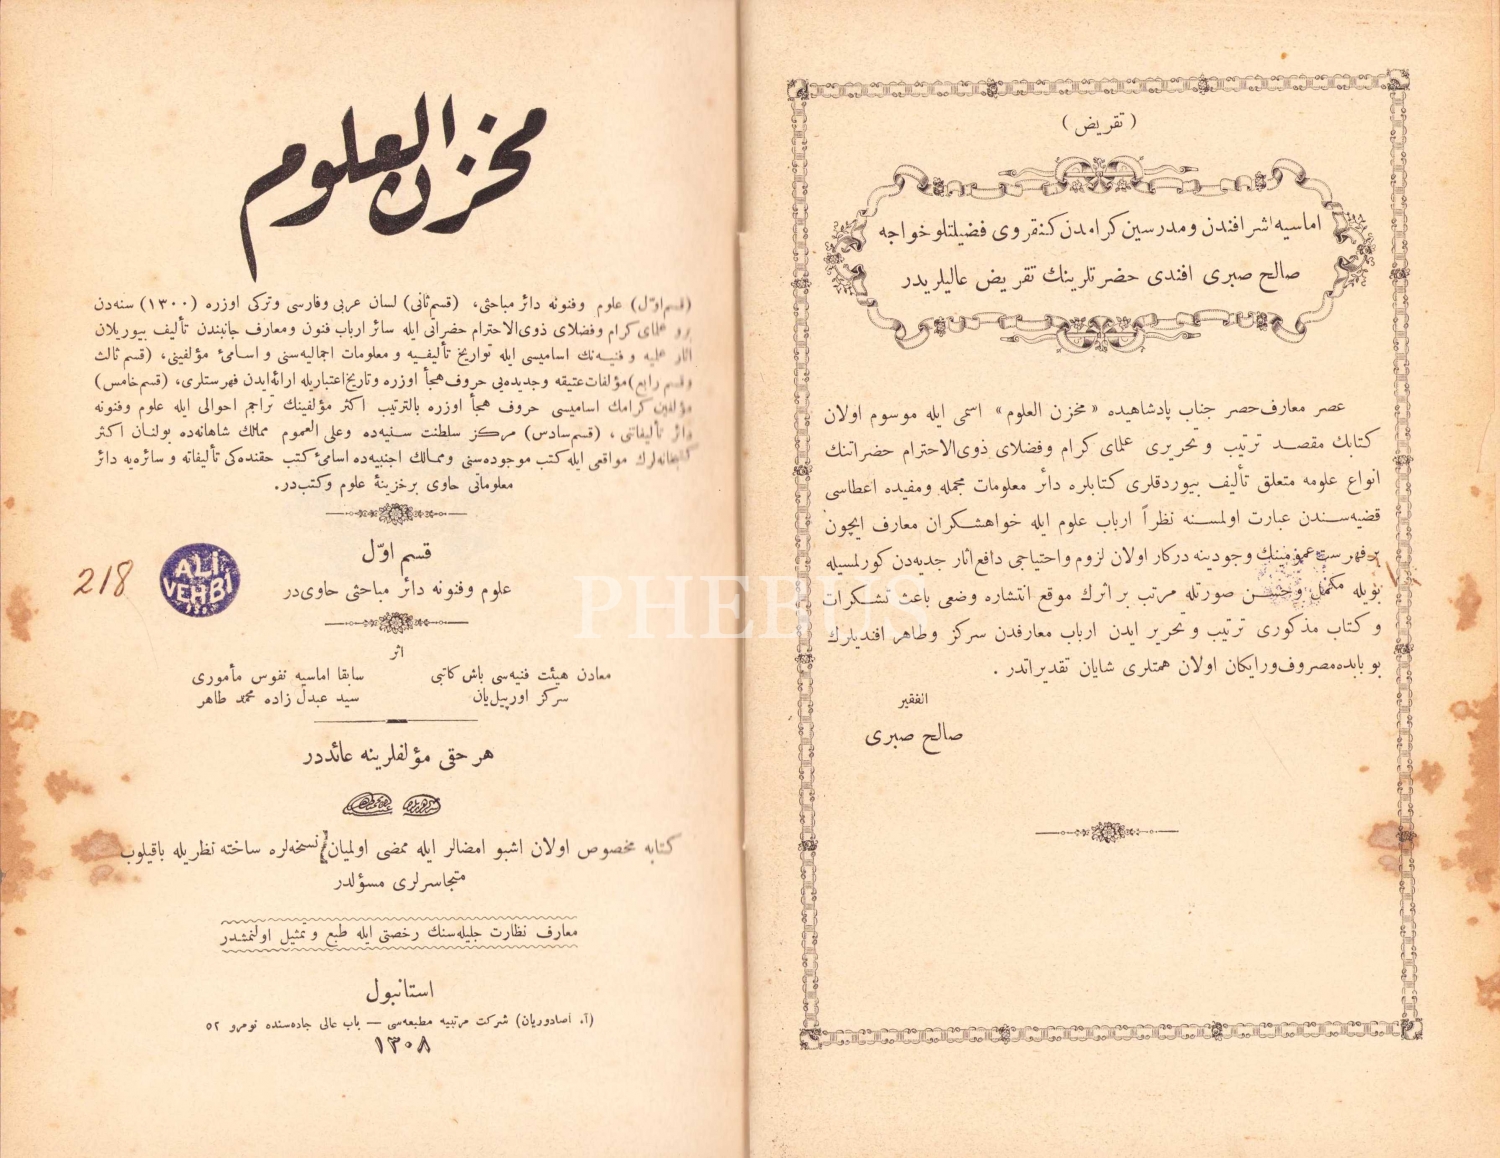 مخزن العلوم
(قسم اوّل) علوم وفنونه دائر مباحثى، (قسم ثانى) لسان عربى وفارسى وتركى اوزره (١٣٠٠) سنه‌دن
برو علماى كرام وفضلاى ذوى‌الاحترام حضراتى ايله سائر ارباب فنون ومعارف جانبندن تأليف بيوريلان
آثار علميه و فنيه‌نك اساميسى ايله تواريخ تأليفيه و معلومات اجماليه‌سنى و اسامئ مؤلفينى، (قسم ثالث
وقسم رابع) مؤلفات عتيقه و جديده‌يى حروف هجأ اوزره وتاريخ اعتباريله ارائه‌ايدن فهرستلرى، (قسم خامس)
مؤلفين كرامك اساميسى حروف هجأ اوزره بالترتيب اكثر مؤلفينك تراجم احوالى ايله علوم وفنونه
دائر تأليفاتنى، (قسم سادس) مركز سلطنت سنيه‌ده وعلى العموم ممالك شاهانه‌ده بولنان اكثر
كتبخانه‌لرك مواقعى ايله كتب موجوده‌سنى وممالك اجنبيه‌ده اسامئ كتب حقنده‌كى تأليفاته و سائره‌يه دائر
معلوماتى حاوى برخزينهٔ علوم وكتب‌در.
218
ALİ
VEHBİ
قسم اوّل
علوم وفنونه دائر مباحثى حاوى‌در
اثر
معادن هيئت فنيه‌سى باش كاتبى
سركز اورپيل‌يان
سابقا اماسيه نفوس مأمورى
سيد عبدل زاده محمد طاهر
هر حقى مؤلفلرينه عائددر
كتابه مخصوص اولان اشبو امضالر ايله ممضى اولميان نسخه‌لره ساخته نظريله باقيلوب
متجاسرلرى مسؤلدر
معارف نظارت جليله‌سنك رخصتى ايله طبع و تمثيل اولنمشدر
استانبول
(آ. آصادوريان) شركت مرتبيه مطبعه‌سى — باب عالى جاده‌سنده نومرو ٥٢
١٣٠٨
(تقريض)
اماسيه اشرافندن ومدرسين كرامدن كنغروى فضيلتلو خواجه
صالح صبرى افندى حضرتلرينك تقريض عاليلريدر
عصر معارف‌حصر جناب پادشاهيده «مخزن العلوم» اسمى ايله موسوم اولان
كتابك مقصد ترتيب و تحريرى علماى كرام وفضلاى ذوى‌الاحترام حضراتنك
انواع علومه متعلق تأليف بيوردقلرى كتابلره دائر معلومات مجمله ومفيده اعطاسى
قضيه‌سندن عبارت اولمسنه نظراً ارباب علوم ايله خواهشكران معارف ايچون
بر فهرست عمومينك وجودينه دركار اولان لزوم واحتياجى دافع آثار جديه‌دن كورلمسيله
بويله مكمل و صورتله مرتب بر اثرك موقع انتشاره وضعى باعث تشكرات
و كتاب مذكورى ترتيب و تحرير ايدن ارباب معارفدن سركز وطاهر افنديلرك
بو بابده مصروف ورايكان اولان همتلرى شايان تقديراتدر.
الفقير
صالح صبرى
PHEBUS